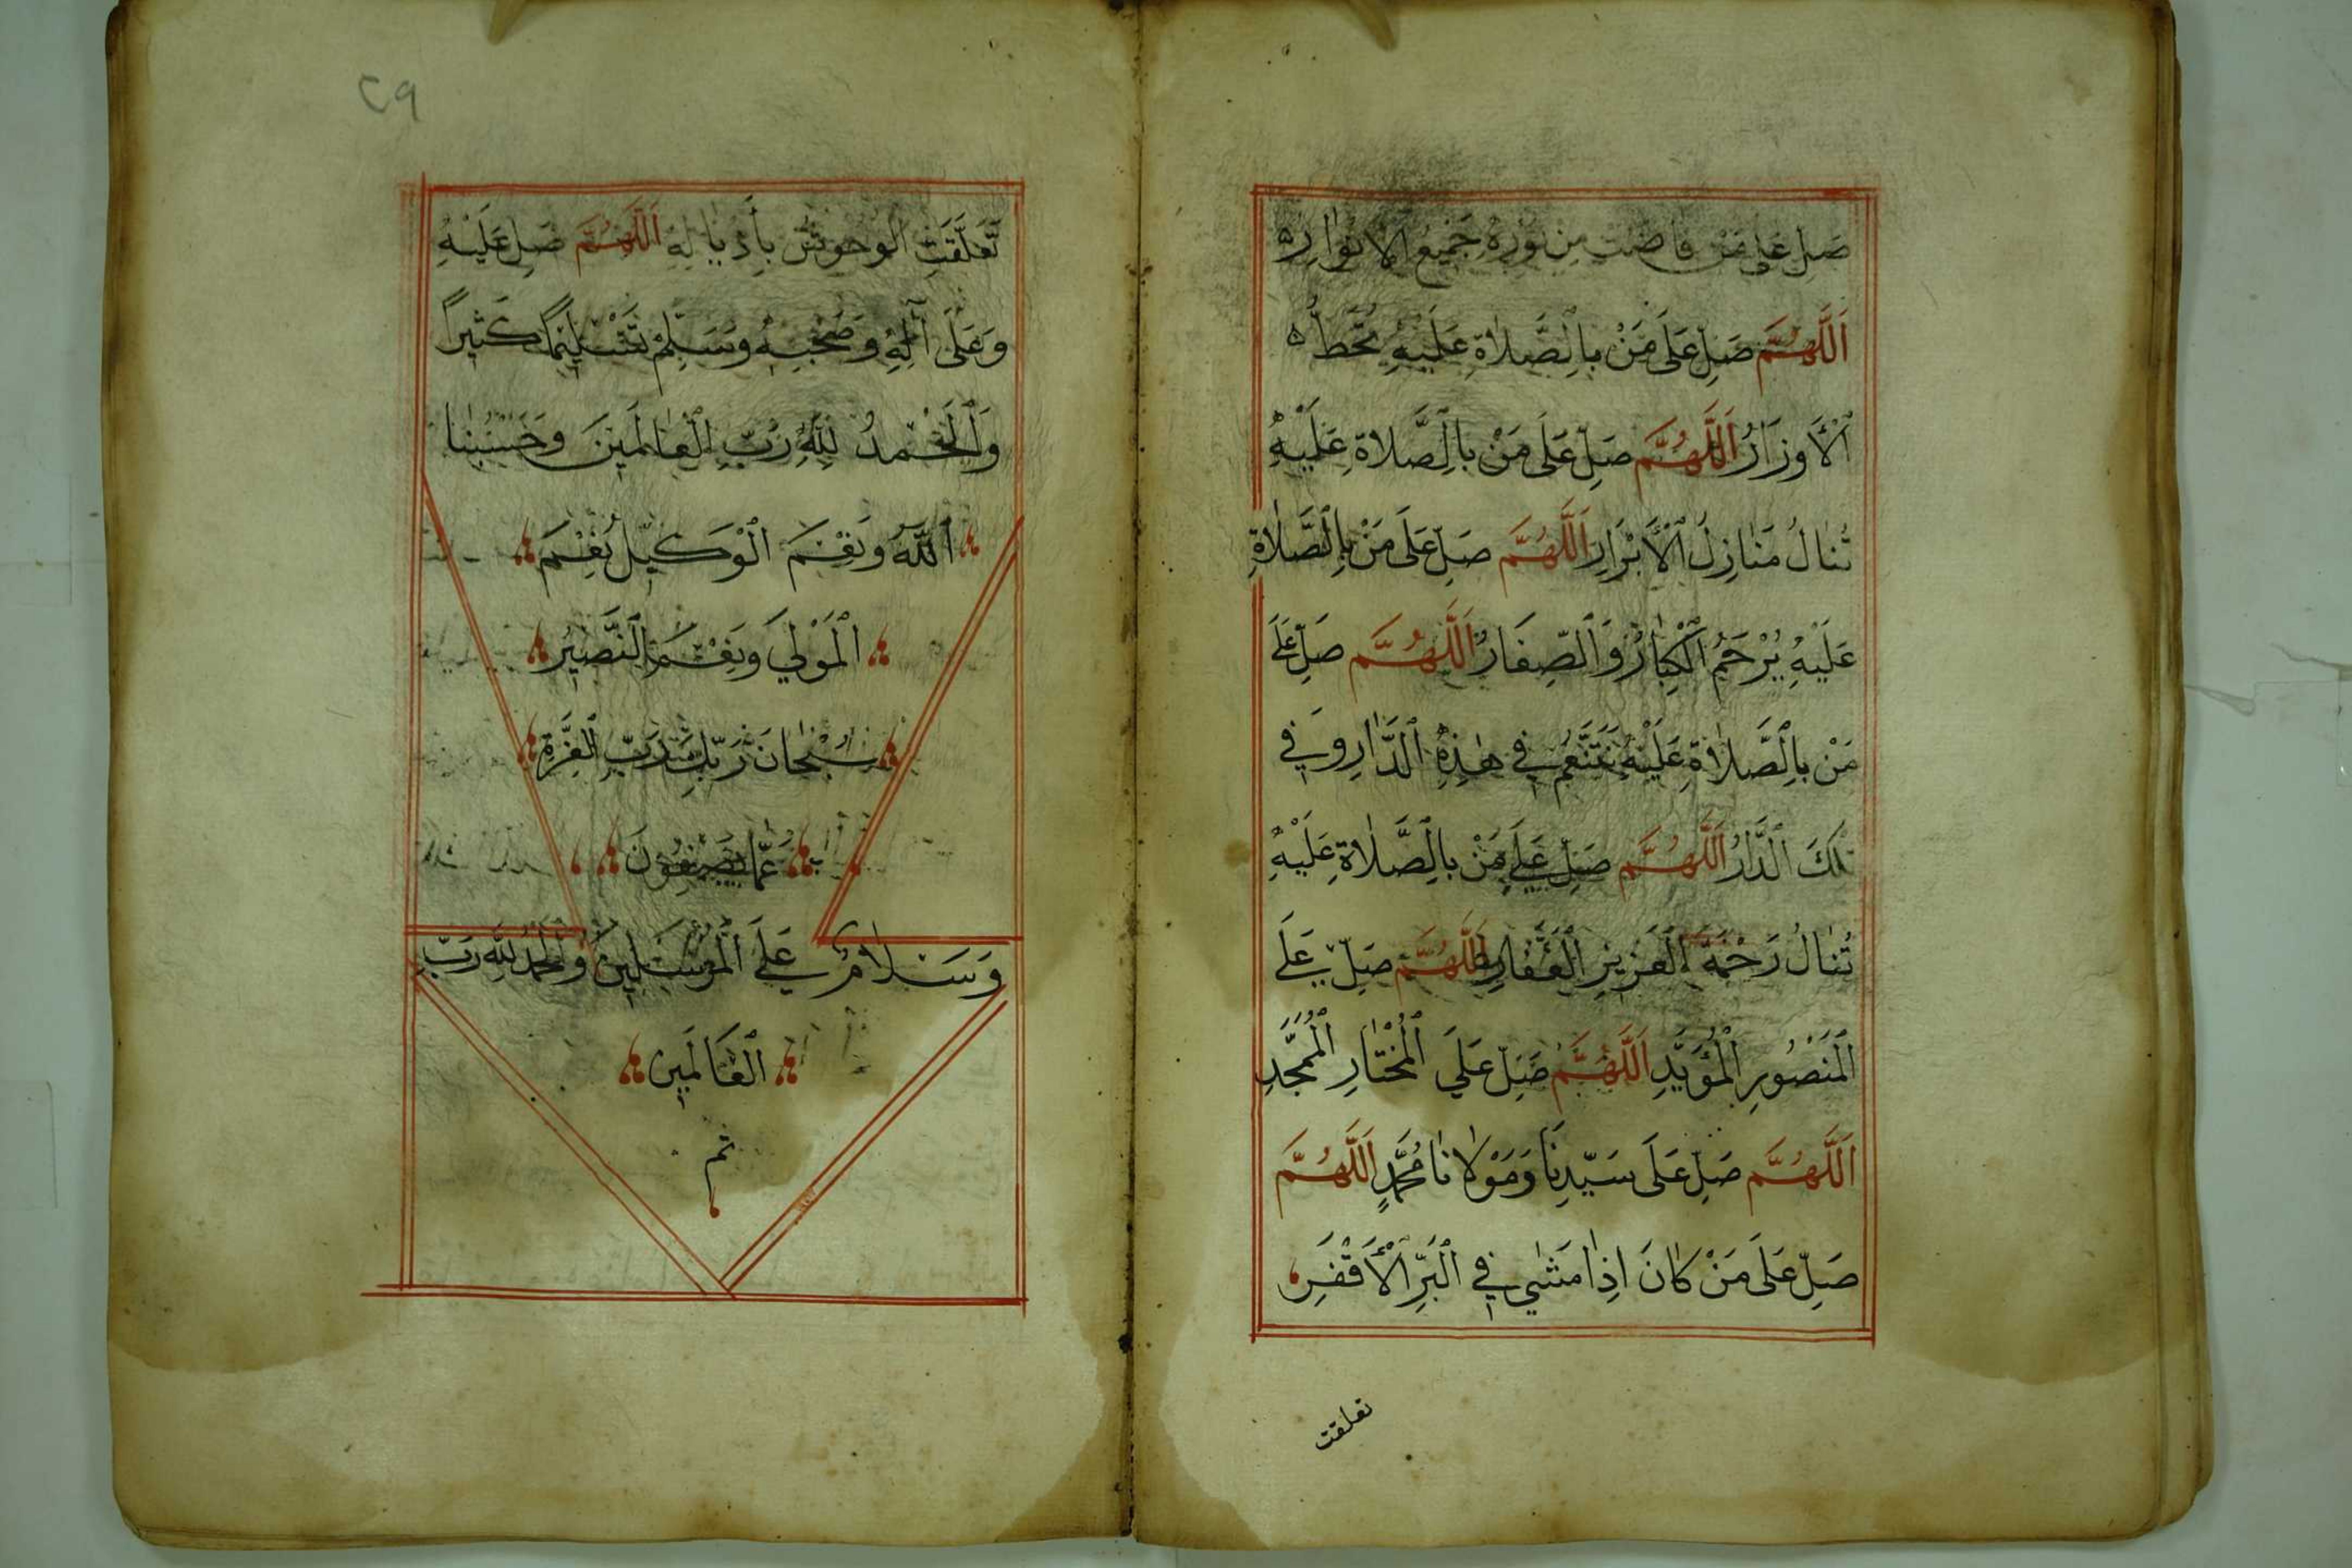 صَلِّ عَلَى مَنْ فَاضَتْ مِنْ نُورِهِ جَمِيعُ الْأَنْوَارِ ه
اَللَّهُمَّ صَلِّ عَلَى مَنْ بِالصَّلَاةِ عَلَيْهِ تُحَطُّ ه
الْأَوْزَارُ اَللَّهُمَّ صَلِّ عَلَى مَنْ بِالصَّلَاةِ عَلَيْهِ
تُنَالُ مَنَازِلُ الْأَبْرَارِ اَللَّهُمَّ صَلِّ عَلَى مَنْ بِالصَّلَاةِ
عَلَيْهِ يُرْحَمُ الْكِبَارُ وَالصِّغَارُ اَللَّهُمَّ صَلِّ عَلَى
مَنْ بِالصَّلَاةِ عَلَيْهِ نَتَنَعَّمُ فِي هٰذِهِ الدَّارِ وَفِي
تِلْكَ الدَّارُ اَللَّهُمَّ صَلِّ عَلَى مَنْ بِالصَّلَاةِ عَلَيْهِ
تُنَالُ رَحْمَةُ الْعَزِيزِ الْغَفَّارِ اَللَّهُمَّ صَلِّ عَلَى
الْمَنْصُورِ الْمُؤَيَّدِ اَللَّهُمَّ صَلِّ عَلَى الْمُخْتَارِ الْمُمَجَّدِ
اَللَّهُمَّ صَلِّ عَلَى سَيِّدِنَا وَمَوْلَانَا مُحَمَّدٍ اَللَّهُمَّ
صَلِّ عَلَى مَنْ كَانَ اِذَا مَشٰي فِي الْبَرِّ الْأَقْفَرِ
تعلقت
٢٩
تَعَلَّقَتِ الْوُحُوشُ بِأَذْيَالِهِ اَللَّهُمَّ صَلِّ عَلَيْهِ
وَعَلَى آلِهِ وَصَحْبِهِ وَسَلِّمْ تَسْلِيمًا كَثِيراً
وَالْحَمْدُ لِلّٰهِ رَبِّ الْعَالَمِينَ وَحَسْبُنَا
اَللّٰهُ وَنِعْمَ الْوَكِيلُ نِعْمَ
الْمَوْلَي وَنِعْمَ النَّصِيرُ
سُبْحَانَ رَبِّكَ رَبِّ الْعِزَّةِ
عَمَّا يَصِفُونَ
وَسَلَامٌ عَلَى الْمُرْسَلِينَ وَالْحَمْدُ لِلّٰهِ رَبِّ
الْعَالَمِينَ
تم